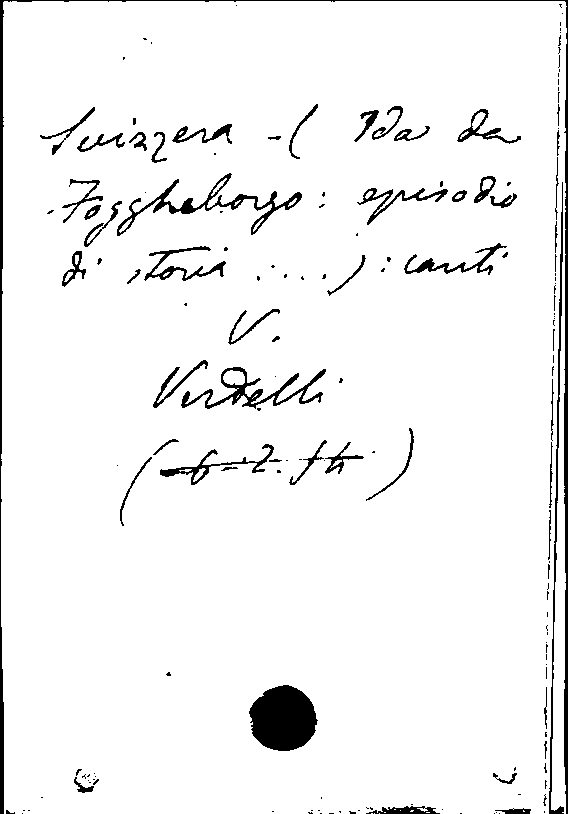 Svizzera - ( Ida da
Foggheborgo : episodio
di storia .... ) : canti
V.
Verdelli
( 6-2. f4 )